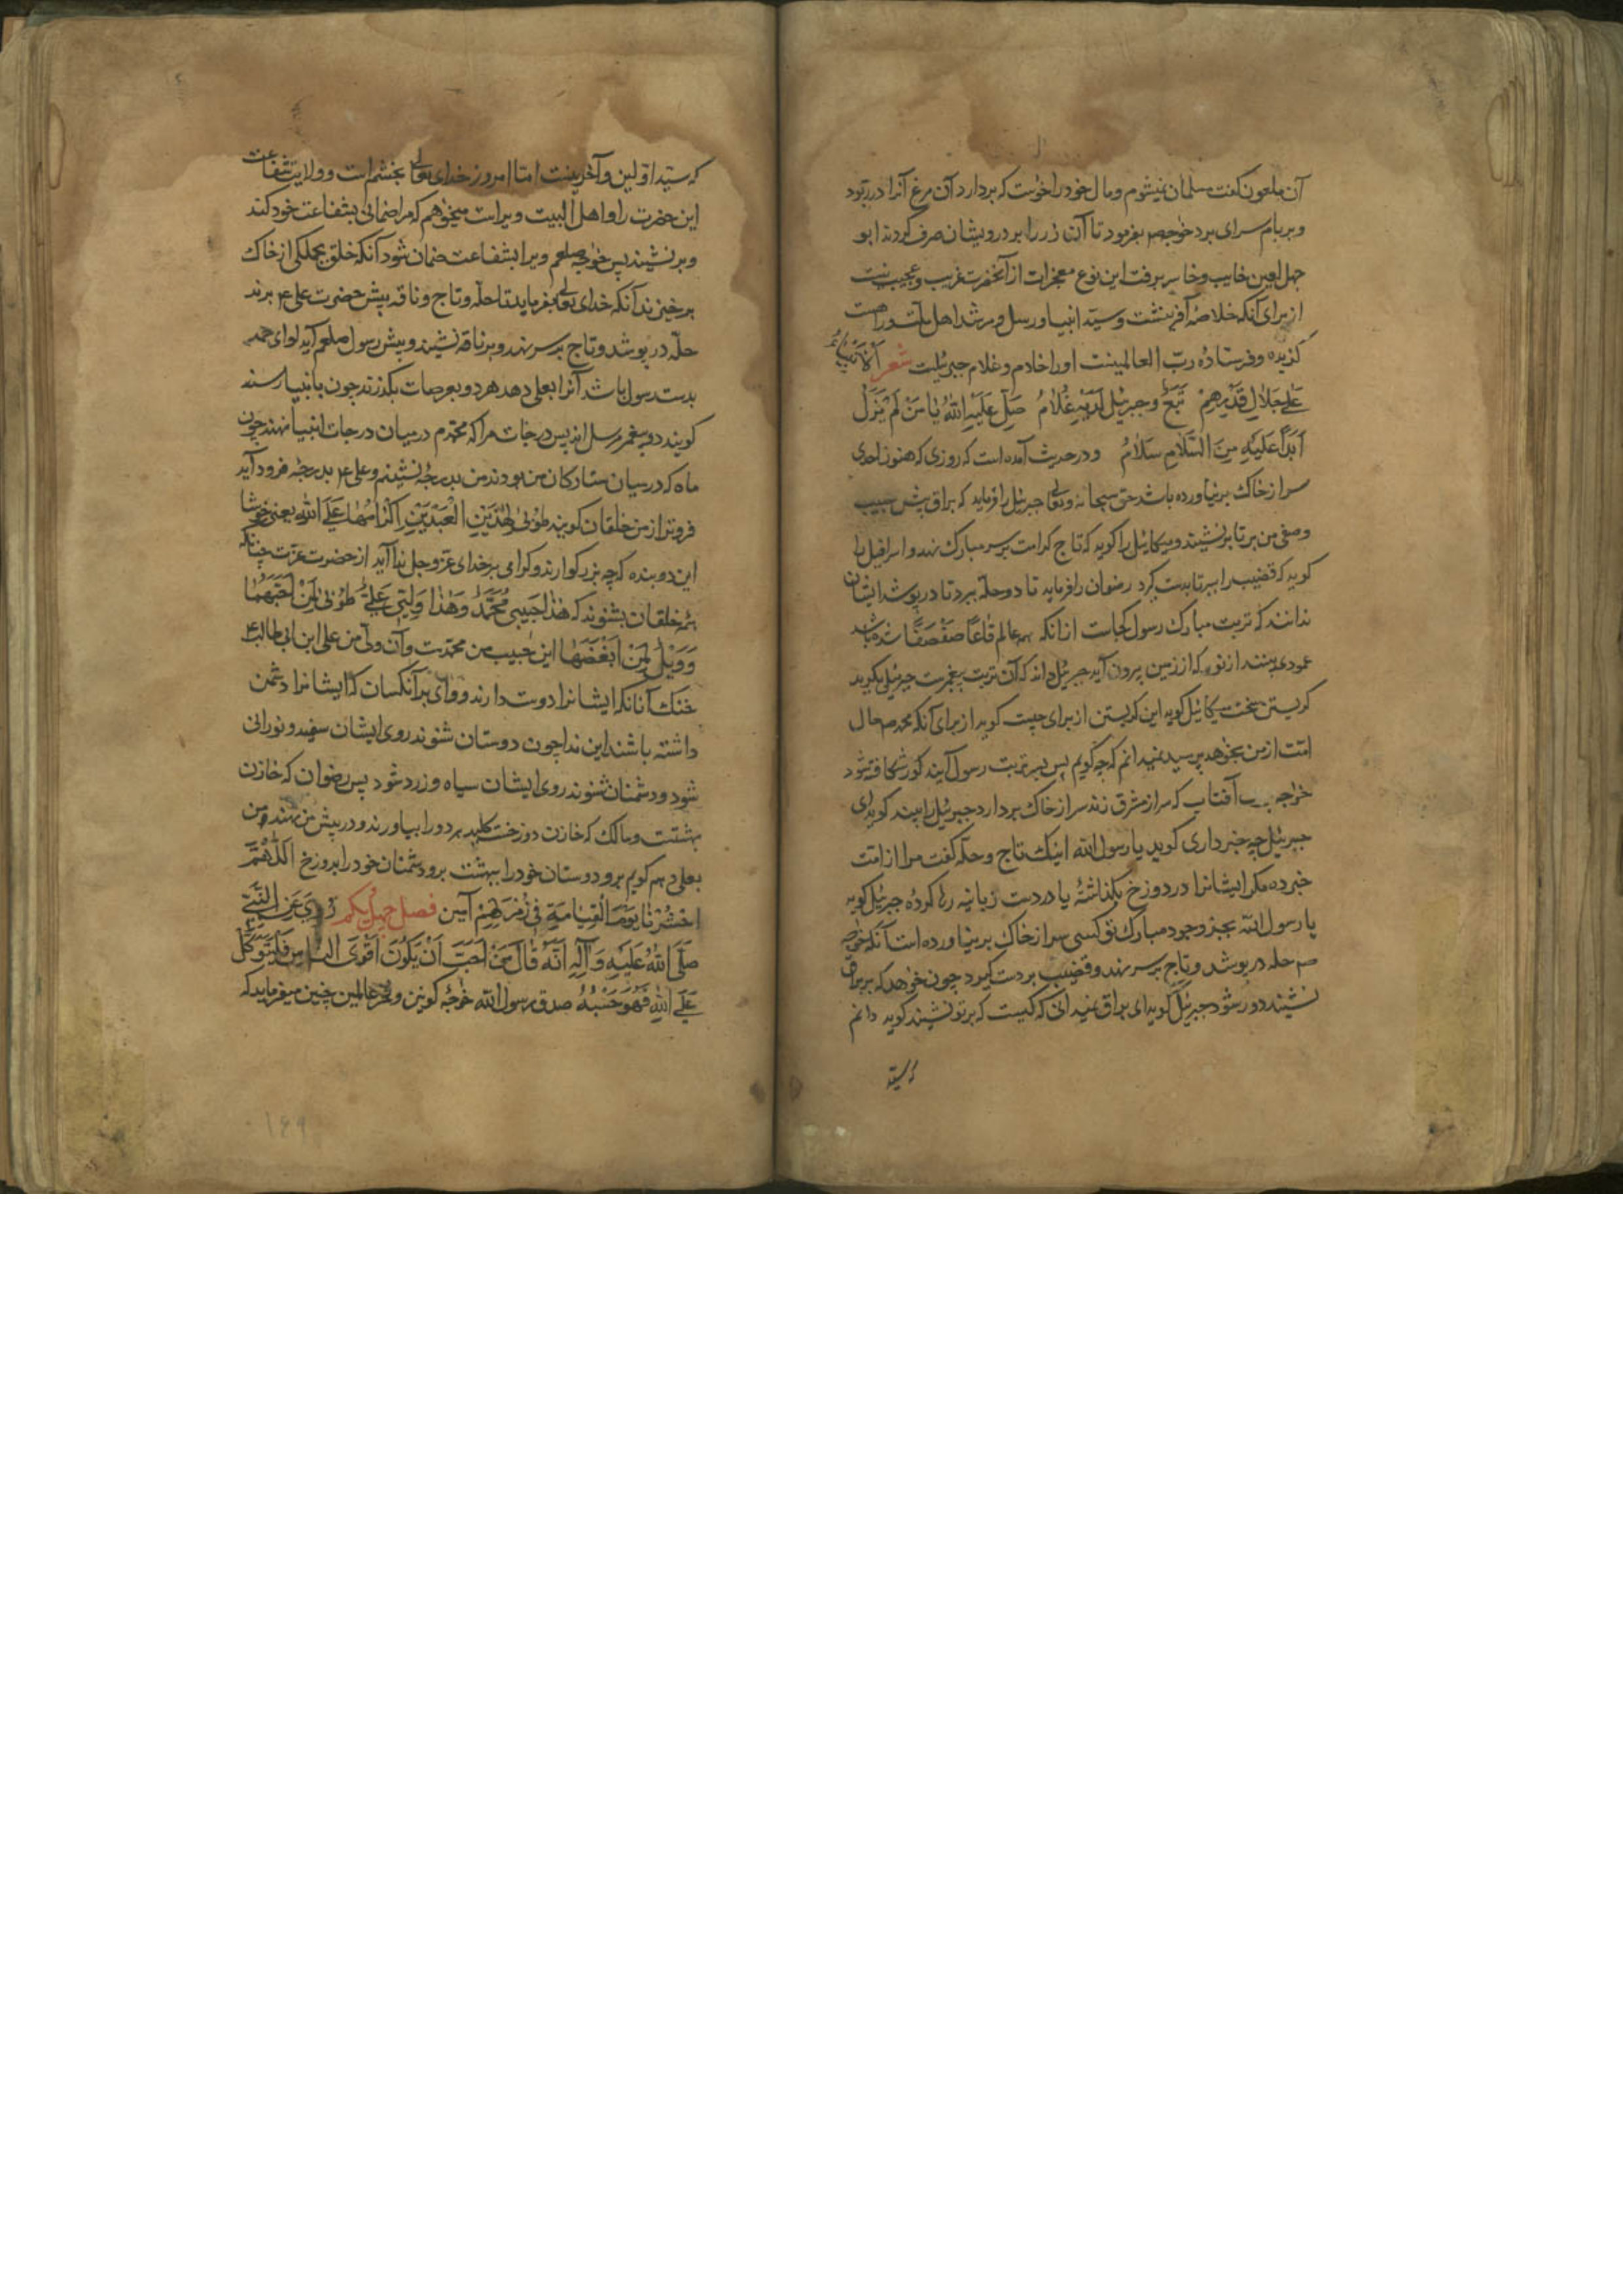 آن ملعون کفت مسلمان نمیشوم ومال خود را خواست که بردارد آن مرغ آنرا در ربود
وبر بام سرای برد خواجه صم بفرمود تا آن زر را بر درویشان صرف کردند ابو
جهل لعین خایب وخاسر برفت این نوع معجزات از آنحضرت غریب وعجیب نیست
از برای آنکه خلاصهٔ آفرینشت وسید انبیا ورسل ومرشد اهل
کزیده وفرستاده رب العالمینست اورا خادم وغلام جبرئیلست شعر الانبیاء
علی جلال قدرهم تبع وجبرئیل لدیه غلام صلی علیه الله یا من لم یزل
ابدا علیه من السلام سلام ودر حدیث آمده است که روزی که هنوز احدی
سر از خاک بر نیاورده باشد حق سبحانه وتعالی جبرئیل را فرماید که براق پیش حبیب
وصفی من بر تا بر نشیند ومیکائیل را کوید که تاج کرامت بر سر مبارک نهد واسرافیل را
کوید که قضیب را ببر تا بدست کیرد رضوان را فرماید تا دو حله ببرد تا در پوشد ایشان
ندانند که تربت مبارک رسول کجاست از انکه همه عالم قاعا صفصفا شده باشد
عمودی بینند از نور که از زمین بیرون آید جبرئیل داند که آن تربت پیغمبرست جبرئیل بکرید
کریستن سخت میکائیل کوید این کریستن از برای چیست کوید از برای آنکه محمد صم حال
امت از من بخواهد پرسید نمیدانم که چه کویم پس بسر تربت رسول آیند کور شکافته شود
خواجه آفتاب که سر از مشرق زند سر از خاک بردارد جبرئیل را بیند کوید ای
جبرئیل چه خبر داری کوید یا رسول الله اینک تاج وحله کفت مرا از امت
خبر ده مکر ایشانرا در دوزخ بکذاشتهٔ یا در دست زبانیه رها کردهٔ جبرئیل کوید
یا رسول الله بجز وجود مبارک تو کسی سر از خاک بر نیاورده است آنکه خواجه
صم حله در پوشد وتاج بر سر نهد وقضیب بر دست کیرد چون خواهد که بر براق
نشیند دور شود جبرئیل کوید ای براق نمیدانی که کیست که بر تو نشیند کوید دانم
که سید
که سید اولین وآخرینست اما امروز خدای تعالی بخشم است وولایت شفاعت
این حضرت را واهل البیت ویراست میخواهم که مرا ضمانی بشفاعت خود کند
وبر نشیند پس خواجه صلعم ویرا بشفاعت ضمان شود آنکه خلق بجملکی از خاک
بر خیزند آنکه خدای تعالی بفرماید تا حله وتاج وناقه پیش حضرت علی ع برند
حله در پوشد وتاج بر سر نهد وبر ناقه نشیند وپیش رسول صلعم آید لوای حمد
بدست رسول باشد آنرا بعلی دهد هر دو بعرصات بکذرند چون بانبیا رسند
کویند دو پیغمبر مرسل اند پس درجات مرا که محمدم در میان درجات انبیا نهند چون
ماه که در میان ستارکان من بدرجه نشینم وعلی ع بدرجه فرود آید
فروتر از من خلقان کویند طوبی لهذین العبدین اکرامهما علی الله یعنی خوشا
این دو بنده که چه بزرکوارند وکرامی بر خدای عز وجل ندا آید از حضرت عزت چنانکه
همه خلقان بشنوند که هذا حبیبی محمد وهذا ولیی علی طوبی لمن احبهما
وویل لمن ابغضهما این حبیب من محمدست وآن ولی من علی ابن ابی طالب ع
خنک آنانکه ایشانرا دوست دارند ووای بر آنکسان که ایشانرا دشمن
داشته باشند این ندا چون دوستان شنوند روی ایشان سفید ونورانی
شود ودشمنان شنوند روی ایشان سیاه وزرد شود پس رضوان که خازن
بهشتست ومالک که خازن دوزخست کلید هر دو را بیاورند ودر پیش من نهند ومن
بعلی دهم کویم برو دوستان خود را ببهشت بر ودشمنان خود را بدوزخ اللهم
احشرنا یوم القیامة فی زمرتهم آمین فصل چهل یکم روی عن النبی
صلی الله علیه وآله انه قال من احب ان یکون اقوی الناس فلیتوکل
علی الله فهو حسبه صدق رسول الله خواجهٔ کونین وفخر عالمین چنین میفرماید که
۱۶۹